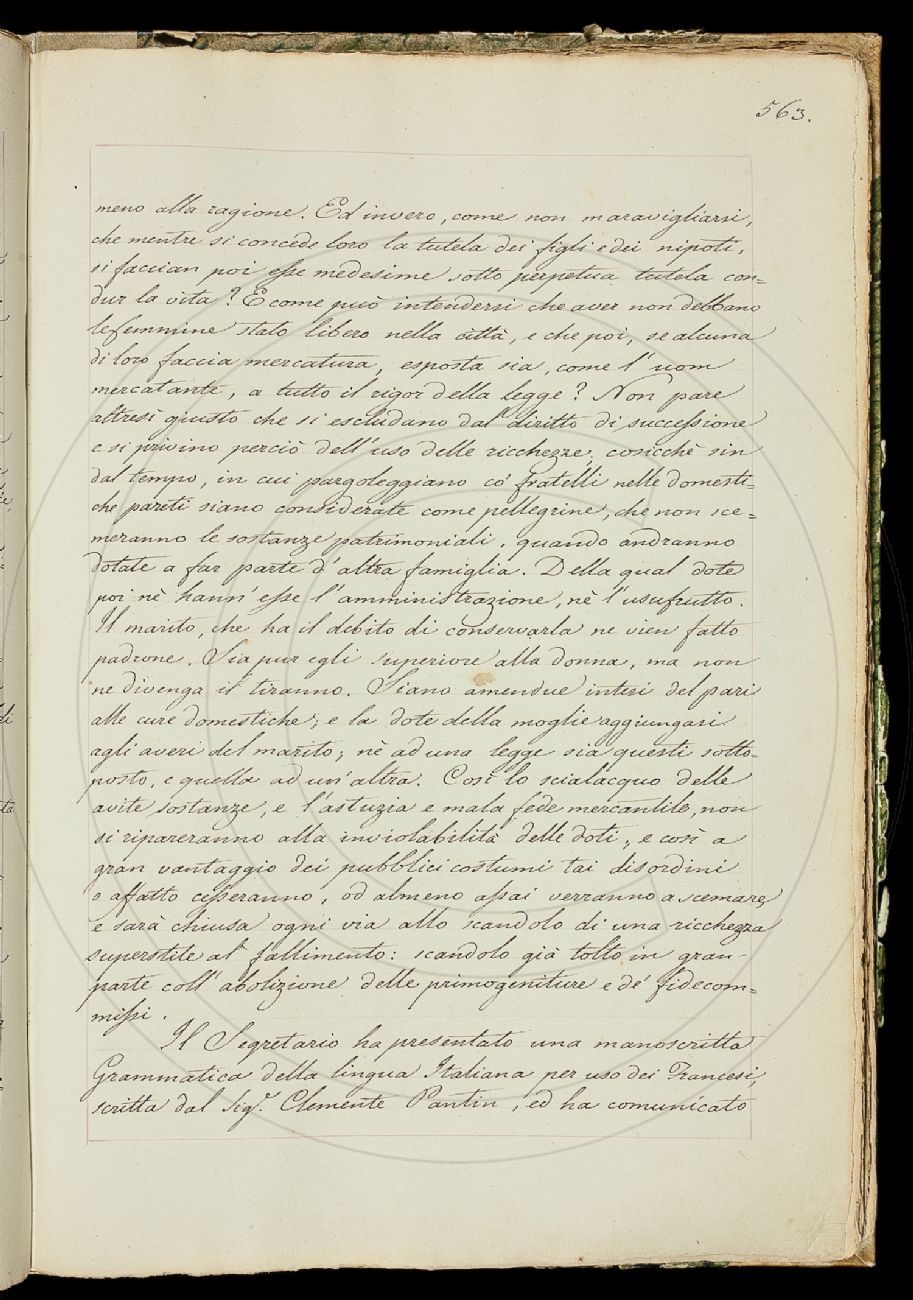 563.
meno alla ragione. Ed invero, come non maravigliarsi,
che mentre si concede loro la tutela dei figli e dei nipoti,
si faccian poi esse medesime sotto perpetua tutela con=
dur la vita? E come può intendersi che aver non debbano
le femmine stato libero nella città, e che poi, se alcuna
di loro faccia mercatura, esposta sia, come l'uom
mercatante, a tutto il rigor della legge? Non pare
altresì giusto che si escludano dal diritto di successione
e si privino perciò dell'uso delle ricchezze, cosicchè sin
dal tempo, in cui pargoleggiano co' fratelli nelle domesti=
che pareti siano considerate come pellegrine, che non sce=
meranno le sostanze patrimoniali, quando andranno
dotate a far parte d'altra famiglia. Della qual dote
poi nè hann'esse l'amministrazione, nè l'usufrutto.
Il marito, che ha il debito di conservarla ne vien fatto
padrone. Sia pur egli superiore alla donna, ma non
ne divenga il tiranno. Siano amendue intesi del pari
alle cure domestiche; e la dote della moglie aggiungasi
agli averi del marito; nè ad una legge sia questi sotto=
posto, e quella ad un'altra. Così lo scialacquo delle
avite sostanze, e l'astuzia e mala fede mercantile, non
si ripareranno alla inviolabilità delle doti; e così a
gran vantaggio dei pubblici costumi tai disordini
o affatto cesseranno, od almeno assai verranno a scemare,
e sarà chiusa ogni via allo scandolo di una ricchezza
superstite al fallimento: scandolo già tolto in gran
parte coll'abolizione delle primogeniture e de' fidecom=
missi.
Il Segretario ha presentato una manoscritta
Grammatica della lingua Italiana per uso dei Francesi,
scritta dal Sigr. Clemente Pantin, ed ha comunicato